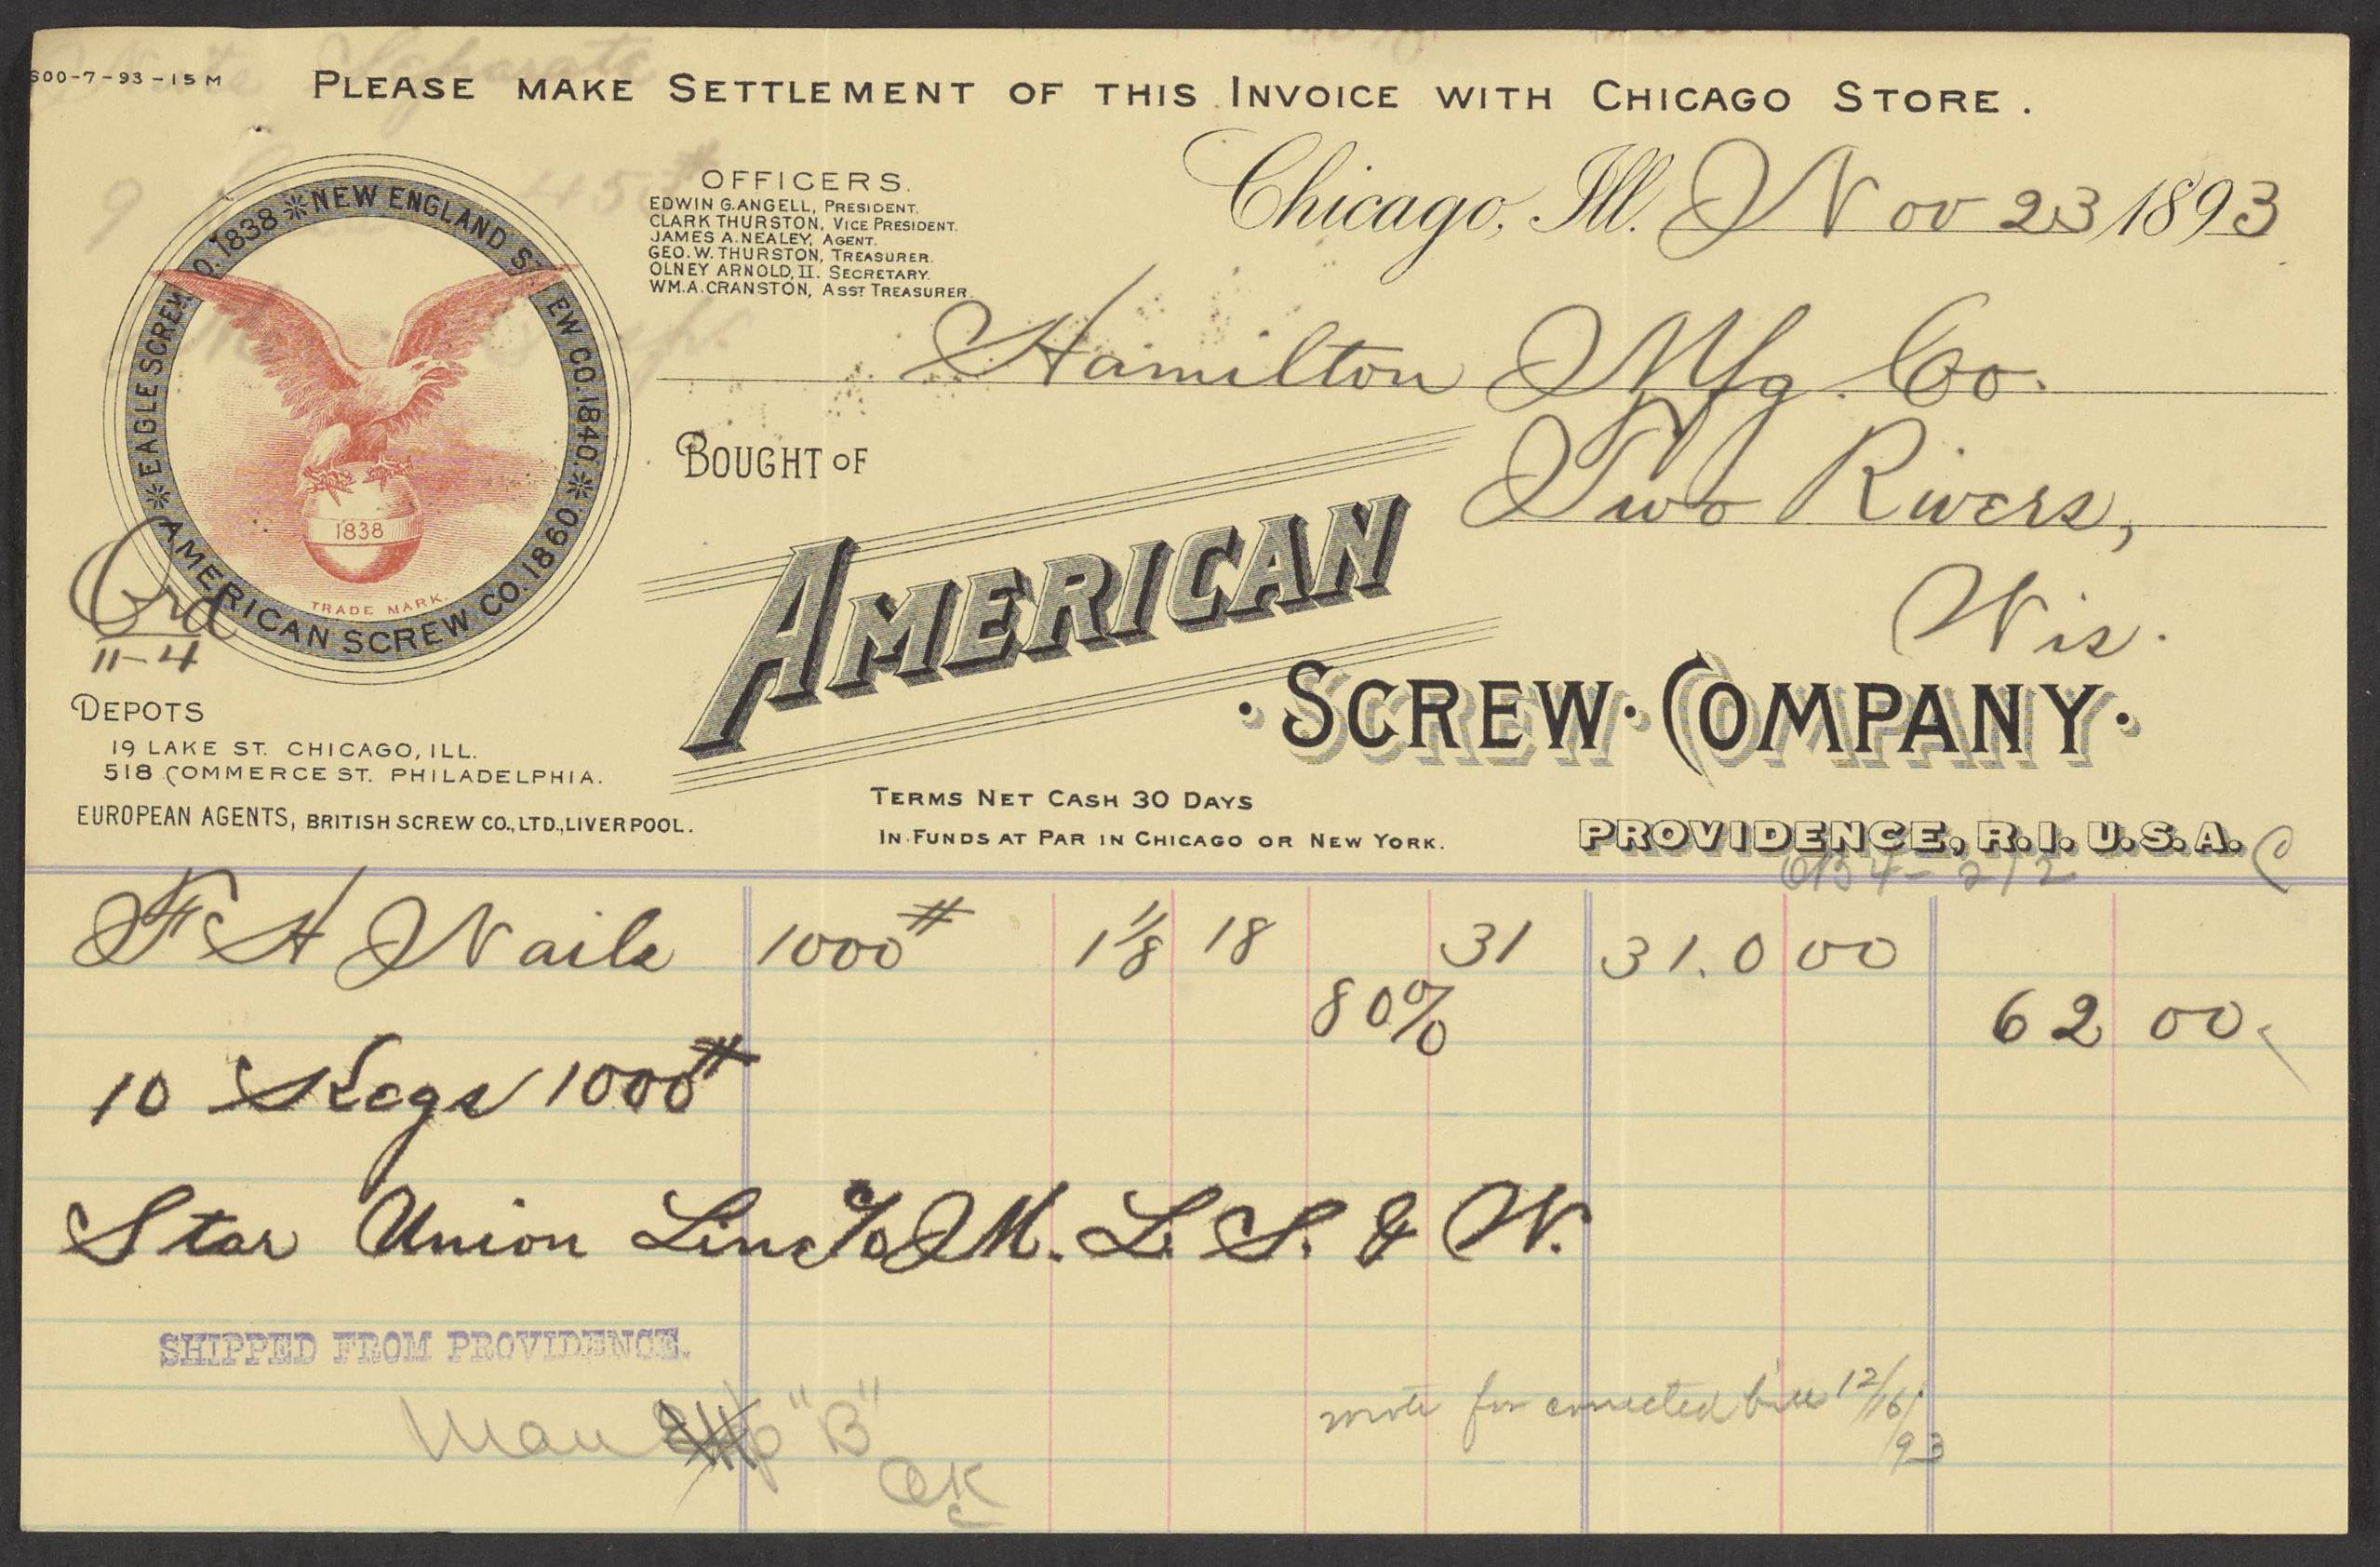 600-7-93-15M
PLEASE MAKE SETTLEMENT OF THIS INVOICE WITH CHICAGO STORE.
Separate
9 45#
OFFICERS.
EDWIN G. ANGELL, PRESIDENT.
CLARK THURSTON, VICE PRESIDENT.
JAMES A. NEALEY, AGENT.
GEO. W. THURSTON, TREASURER.
OLNEY ARNOLD, II. SECRETARY.
WM. A. CRANSTON, ASST TREASURER.
Chicago, Ill. Nov 23 1893
EAGLE SCREW CO. 1838 NEW ENGLAND SCREW CO. 1840. AMERICAN SCREW CO. 1860
1838
TRADE MARK.
Hamilton Mfg. Co.
Two Rivers,
Wis.
BOUGHT OF
AMERICAN
SCREW COMPANY.
Ord
11-4
DEPOTS
19 LAKE ST. CHICAGO, ILL.
518 COMMERCE ST. PHILADELPHIA.
EUROPEAN AGENTS, BRITISH SCREW CO., LTD., LIVERPOOL.
TERMS NET CASH 30 DAYS
IN FUNDS AT PAR IN CHICAGO OR NEW YORK.
PROVIDENCE, R.I. U.S.A.
F H Nails 1000# 1 1/8 18 31 31.0 00
80% 62 00
10 Kegs 1000#
Star Union Line c/o M. L. S. & W.
SHIPPED FROM PROVIDENCE.
Man "B"
OK
wrote for corrected bill 12/16/93